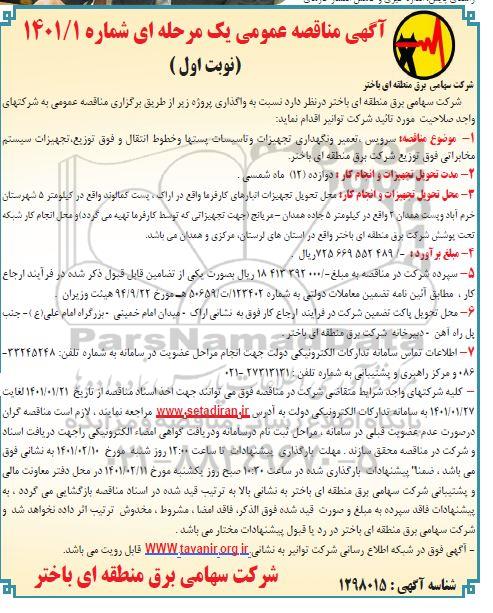 آگهی مناقصه عمومی یک مرحله ای شماره ۱۴۰۱/۱
(نوبت اول)
شرکت سهامی برق منطقه ای باختر
شرکت سهامی برق منطقه ای باختر درنظر دارد نسبت به واگذاری پروژه زیر از طریق برگزاری مناقصه عمومی به شرکتهای
واجد صلاحیت مورد تائید شرکت توانیر اقدام نماید:
۱- موضوع مناقصه: سرویس ،تعمیر ونگهداری تجهیزات وتاسیسات پستها وخطوط انتقال و فوق توزیع،تجهیزات سیستم
مخابراتی فوق توزیع شرکت برق منطقه ای باختر.
۲- مدت تحویل تجهیزات و انجام کار : دوازده (۱۲) ماه شمسی .
۳- محل تحویل تجهیزات و انجام کار : محل تحویل تجهیزات انبارهای کارفرما واقع در اراک ، پست کمالوند واقع در کیلومتر ۵ شهرستان
خرم آباد وپست همدان ۲ واقع در کیلومتر ۵ جاده همدان – مریانج (جهت تجهیزاتی که توسط کارفرما تهیه می گردد)و محل انجام کار شبکه
تحت پوشش شرکت برق منطقه ای باختر واقع در استان های لرستان، مرکزی و همدان می باشد.
۴- مبلغ برآورد : /- ۴۸۹ ۵۵۲ ۶۶۹ ۷۲۵ریال .
۵- سپرده شرکت در مناقصه به مبلغ-/۰۰۰ ۳۹۲ ۴۱۳ ۱۸ ریال بصورت یکی از تضامین قابل قبول ذکر شده در فرآیند ارجاع
کار ، مطابق آئین نامه تضمین معاملات دولتی به شماره ۱۲۳۴۰۲/ت/۵۰۶۵۹هـ مورخ ۹۴/۹/۲۲ هیئت وزیران .
۶- محل تحویل پاکت تضمین شرکت در فرایند ارجاع کار فوق به نشانی اراک - میدان امام خمینی -بزرگراه امام علی(ع) - جنب
پل راه آهن - دبیرخانه شرکت برق منطقه ای باختر.
۷- اطلاعات تماس سامانه تدارکات الکترونیکی دولت جهت انجام مراحل عضویت در سامانه به شماره تلفن: ۳۳۲۴۵۲۴۸-
۰۸۶ و مرکز راهبری و پشتیبانی به شماره تلفن : ۲۷۳۱۳۱۳۱-۰۲۱
– کلیه شرکتهای واجد شرایط متقاضی شرکت در مناقصه فوق می توانند جهت اخذ اسناد مناقصه از تاریخ ۱۴۰۱/۰۱/۲۱ لغایت
۱۴۰۱/۰۱/۲۷ به سامانه تدارکات الکترونیکی دولت به آدرس www.setadiran.ir مراجعه نمایند . لازم است مناقصه گران
درصورت عدم عضویت قبلی در سامانه ، مراحل ثبت نام درسامانه ودریافت گواهی امضاء الکترونیکی راجهت دریافت اسناد
و شرکت در مناقصه محقق سازند . مهلت بارگذاری پیشنهادات تا ساعت ۱۲:۰۰ روز شنبه مورخ ۱۴۰۱/۰۲/۱۰ به نشانی فوق
می باشد ، ضمنا" پیشنهادات بارگذاری شده در ساعت ۱۰:۳۰ صبح روز یکشنبه مورخ ۱۴۰۱/۰۲/۱۱ در محل دفتر معاونت مالی
و پشتیبانی شرکت سهامی برق منطقه ای باختر به نشانی بالا به ترتیب قید شده در اسناد مناقصه بازگشایی می گردد ، به
پیشنهادات فاقد سپرده به مبلغ و صورت قید شده فوق الذکر، فاقد امضا ، مشروط ، مخدوش ترتیب اثر داده نخواهد شد و
شرکت سهامی برق منطقه ای باختر در رد یا قبول پیشنهادات مختار می باشد.
– آگهی فوق در شبکه اطلاع رسانی شرکت توانیر به نشانی WWW.tavanir.org.ir قابل رویت می باشد.
شناسه آگهی : ۱۲۹۸۰۱۵
شرکت سهامی برق منطقه ای باختر
ParsNamadData